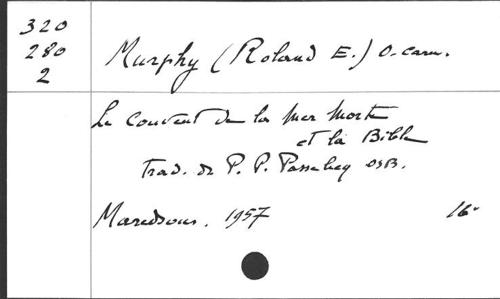 320
280
2
Murphy (Roland E.) O. carm.
Le couvent de la Mer Morte
et la Bible
trad. de P. P. Passelecq OSB.
Maredsous. 1957 16°